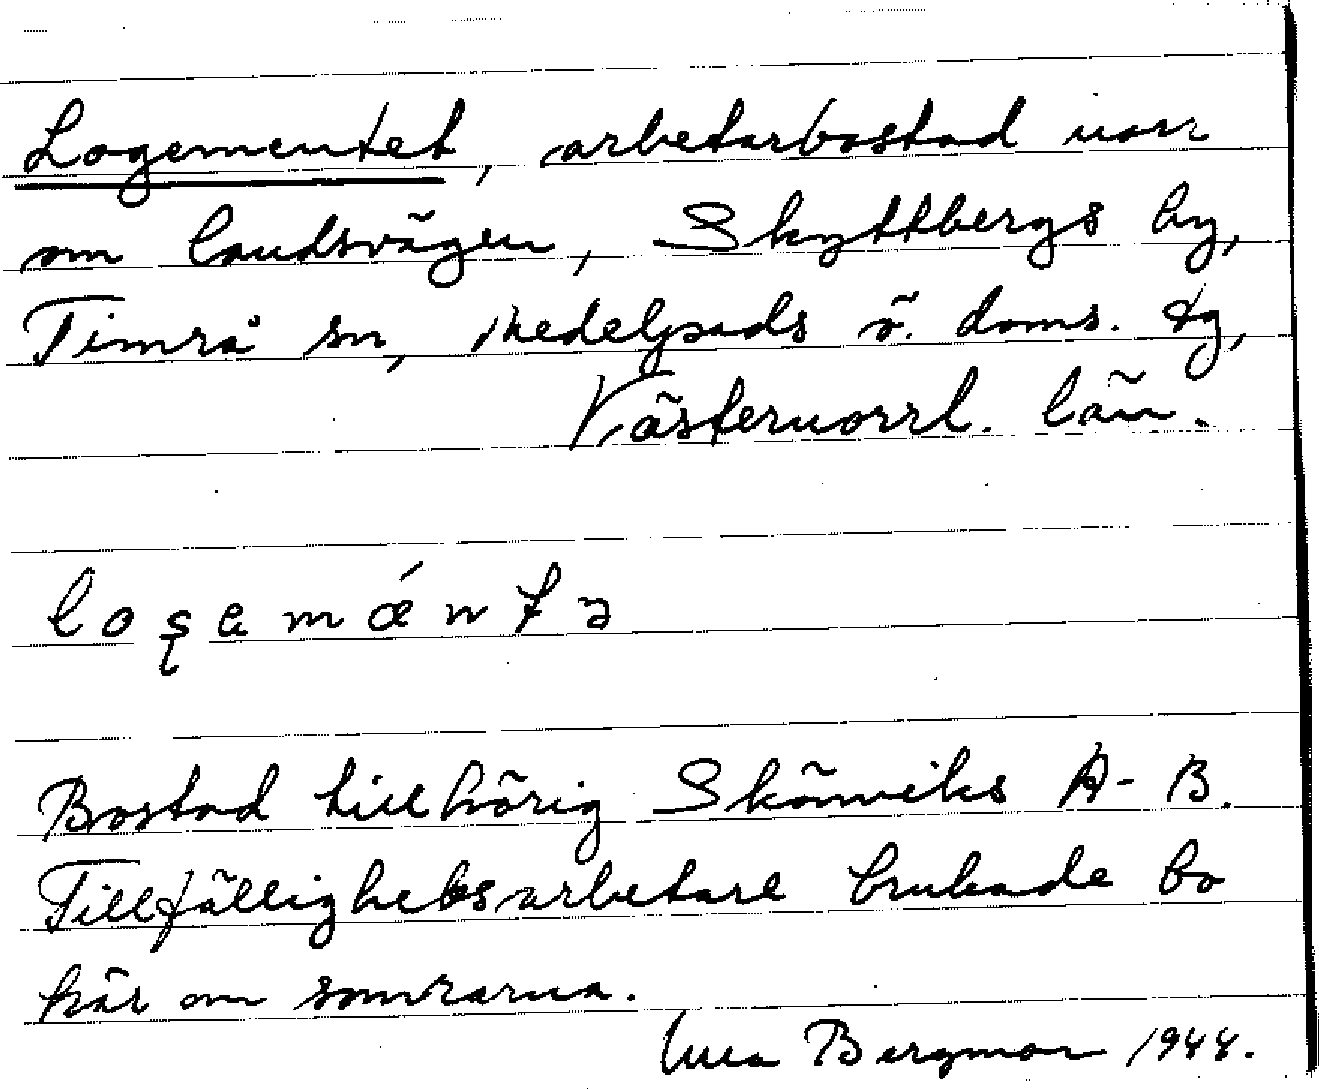 Logementet, arbetarbostad norr
om landsvägen, Skyttbergs by,
Timrå sn, Medelpads ö. doms. tg,
Västernorrl. län.
Bostad tillhörig Skönviks A-B.
Tillfällighetsarbetare brukade bo
här om somrarna.
Bergman 1944.